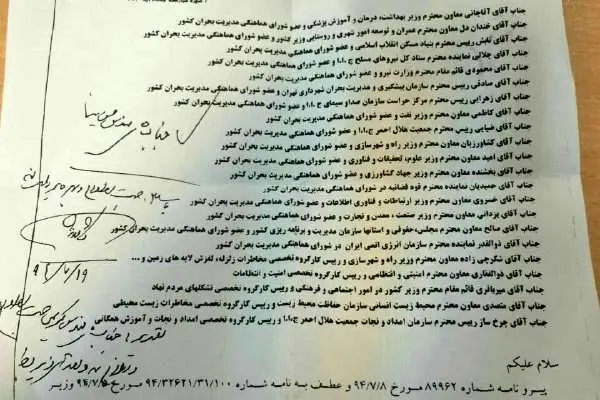 جناب آقای آقاجانی معاون محترم وزیر بهداشت، درمان و آموزش پزشکی و عضو شورای هماهنگی مدیریت بحران کشور
جناب آقای خندان دل معاون محترم عمران و توسعه امور شهری و روستایی وزیر کشور و عضو شورای هماهنگی مدیریت بحران کشور
جناب آقای تابش رییس محترم بنیاد مسکن انقلاب اسلامی و عضو شورای هماهنگی مدیریت بحران کشور
جناب آقای جلالی نماینده محترم ستاد کل نیروهای مسلح ج.ا.ا و عضو شورای هماهنگی مدیریت بحران کشور
جناب آقای محمودی قائم مقام محترم وزارت نیرو و عضو شورای هماهنگی مدیریت بحران کشور
جناب آقای صادقی رییس محترم سازمان پیشگیری و مدیریت بحران شهرداری تهران و عضو شورای هماهنگی مدیریت بحران کشور
جناب آقای زهرایی رییس محترم مرکز حراست سازمان صدا و سیمای ج.ا.ا و عضو شورای هماهنگی مدیریت بحران کشور
جناب آقای کاظمی معاون محترم وزیر نفت و عضو شورای هماهنگی مدیریت بحران کشور
جناب آقای ضیایی رییس محترم جمعیت هلال احمر ج.ا.ا و عضو شورای هماهنگی مدیریت بحران کشور
جناب آقای کشاورزیان معاون محترم وزیر راه و شهرسازی و عضو شورای هماهنگی مدیریت بحران کشور
جناب آقای امید معاون محترم وزیر علوم، تحقیقات و فناوری و عضو شورای هماهنگی مدیریت بحران کشور
جناب آقای بخشنده معاون محترم وزیر جهاد کشاورزی و عضو شورای هماهنگی مدیریت بحران کشور
جناب آقای حمیدیان نماینده محترم قوه قضائیه در شورای هماهنگی مدیریت بحران کشور
جناب آقای خسروی معاون محترم وزیر ارتباطات و فناوری اطلاعات و عضو شورای هماهنگی مدیریت بحران کشور
جناب آقای یزدانی معاون محترم وزیر صنعت، معدن و تجارت و عضو شورای هماهنگی مدیریت بحران کشور
جناب آقای صالح معاون محترم مجلس،حقوقی و استانها سازمان مدیریت و برنامه ریزی کشور و عضو شورای هماهنگی مدیریت بحران کشور
جناب آقای ذوالقدر نماینده محترم سازمان انرژی اتمی ایران در شورای هماهنگی مدیریت بحران کشور
جناب آقای شکرچی زاده معاون محترم وزیر راه و شهرسازی و رییس کارگروه تخصصی مخاطرات زلزله، لغزش لایه های زمین و...
جناب آقای ذوالفقاری معاون محترم امنیتی و انتظامی و رییس کارگروه تخصصی امنیت و انتظامات
جناب آقای میرباقری قائم مقام محترم وزیر کشور در امور اجتماعی و فرهنگی و رییس کارگروه تخصصی تشکلهای مردم نهاد
جناب آقای متصدی معاون محترم محیط زیست انسانی سازمان حفاظت محیط زیست و رییس کارگروه تخصصی مخاطرات زیست محیطی
جناب آقای چرخ ساز رییس محترم سازمان امداد و نجات جمعیت هلال احمر ج.ا.ا و رییس کارگروه تخصصی امداد و نجات و آموزش همگانی
سلام علیکم
پیرو نامه شماره ۸۹۹۶۲ مورخ ۹۴/۷/۸ و عطف به نامه شماره ۹۴/۳۲۶۲۱/۳۱/۱۰۰ مورخ ۹۴/۷/۵ وزیر